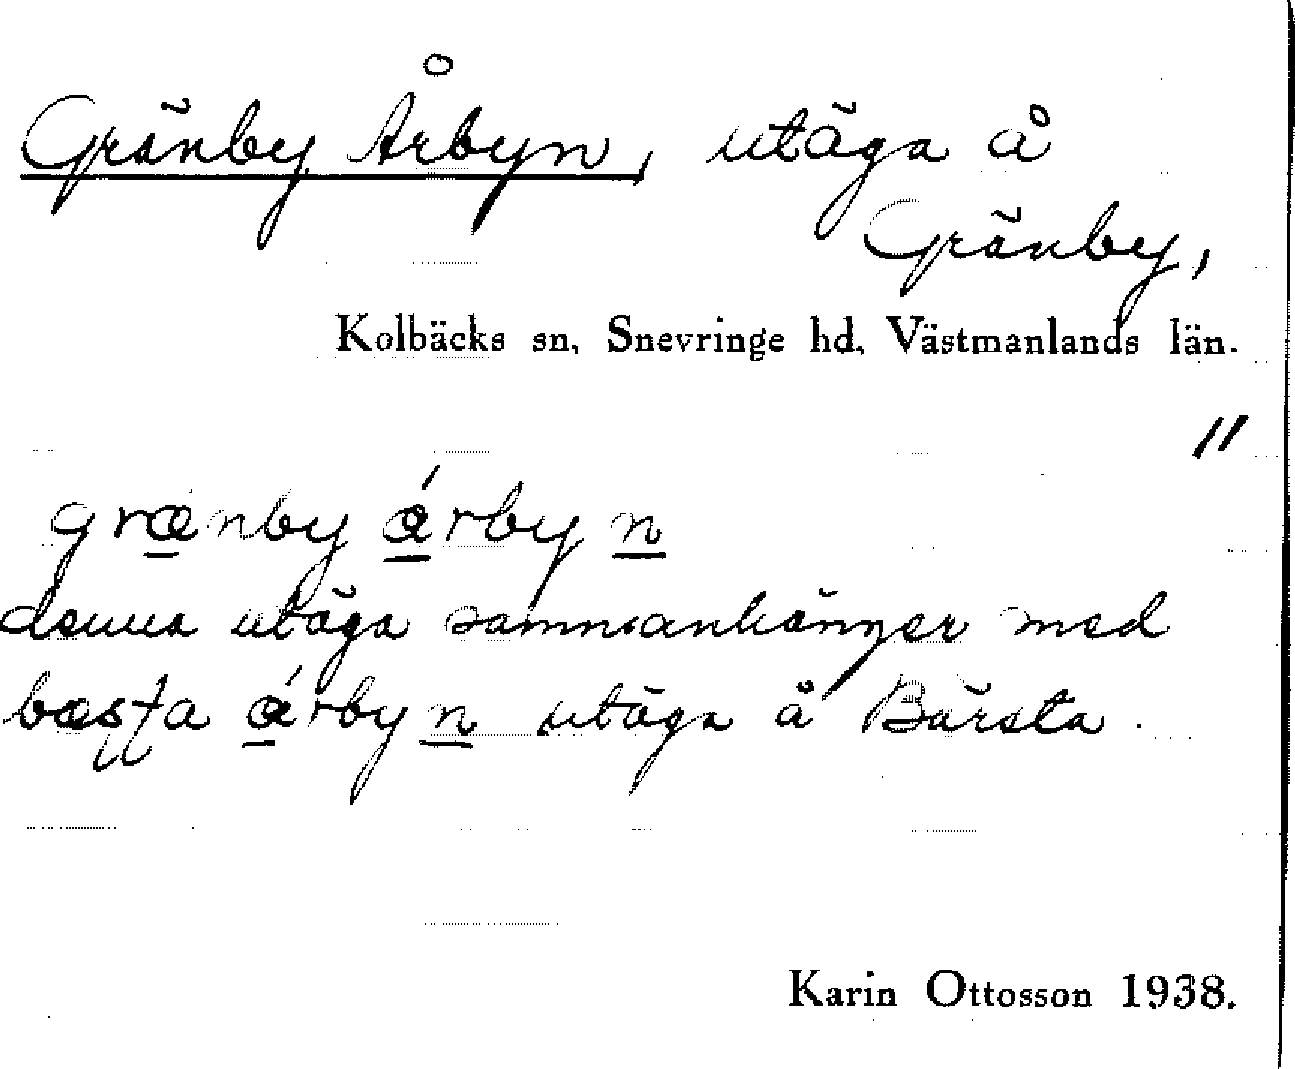 Gränby Årbyn, utäga å
Gränby,
Kolbäcks sn, Snevringe hd, Västmanlands län.
"
grænby ǽrbyn
denna utäga sammanhänger med
bæsta ǽrbyn utäga å Bärsta.
Karin Ottosson 1938.